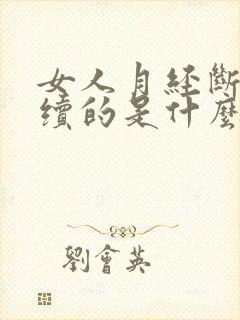 女人月經斷
續的是什麼
劉會英